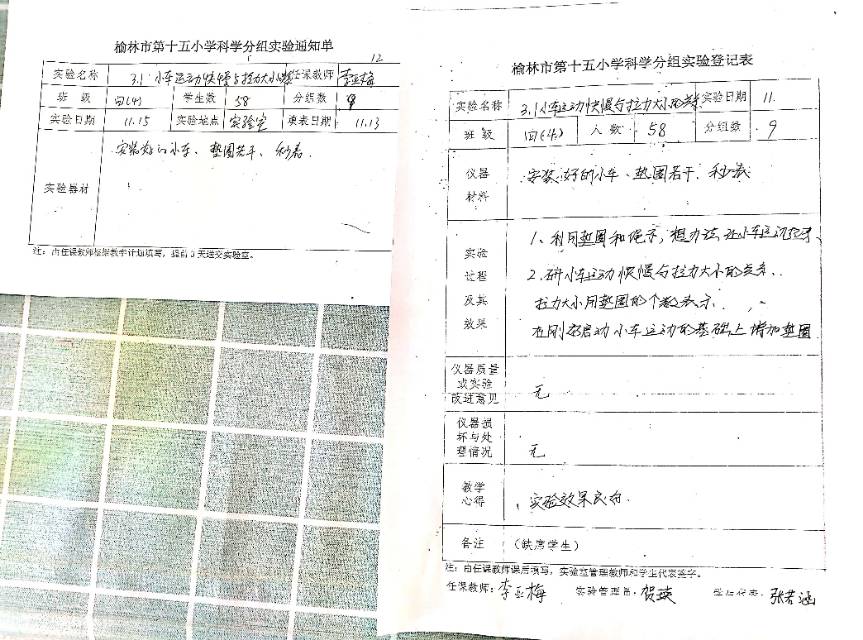 榆林市第十五小学科学分组实验通知单
12
实验名称 3.1 小车运动快慢与拉力大小 任课教师 李亚梅
班级 四(4) 学生数 58 分组数 9
实验日期 11.15 实验地点 实验室 填表日期 11.13
实验器材
安装好的小车、垫圈若干、秒表
注：由任课教师根据教学计划填写，提前3天送交实验室。
榆林市第十五小学科学分组实验登记表
实验名称 3.1小车运动快慢与拉力大小的关系 实验日期 11.
班级 四(4) 人数 58 分组数 9
仪器材料
安装好的小车、垫圈若干、秒表
实验过程及其效果
1、利用垫圈和绳示，想办法让小车运动起来、
2.研小车运动快慢与拉力大小的关系.
拉力大小用垫圈的个数表示.
在刚好启动小车运动的基础上增加垫圈
仪器质量或实验改进意见
无
仪器损坏与处理情况
无
教学心得
实验效果良好.
备注 （缺席学生）
注：由任课教师课后填写，实验室管理教师和学生代表签字。
任课教师：李亚梅 实验管理员：贺瑛 学生代表：张若涵